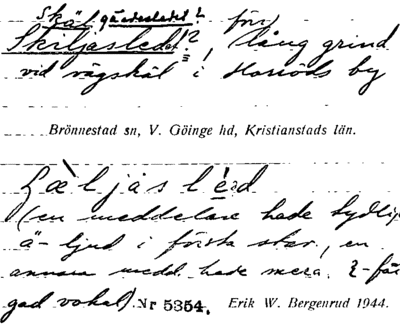 Skäl gärdesledet? för
Skiljasledet!?, lång grind
vid vägskäl i Hassöds by
Brönnestad sn, V. Göinge hd, Kristianstads län.
(en meddelare hade tydlig
ä-ljud i första stav., en
annan medd. hade mera ɛ-fär
gad vokal). Nr 5354. Erik W. Bergenrud 1944.